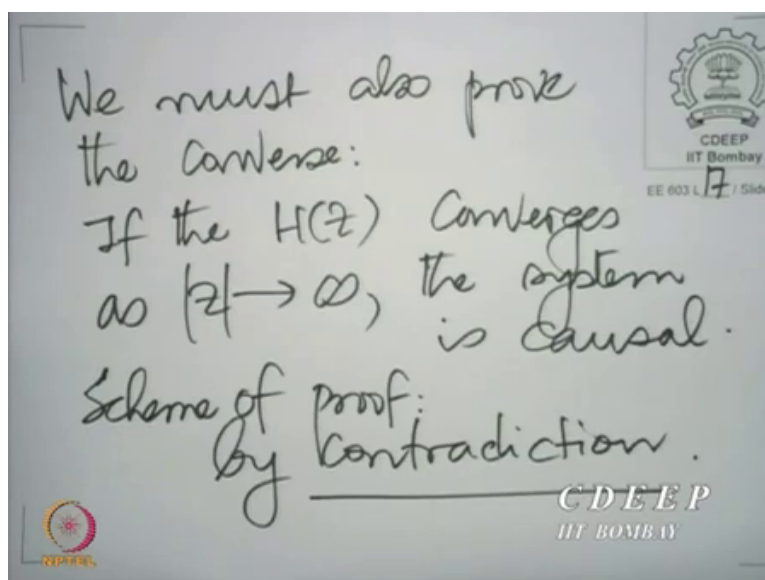 We must also prove
the Converse:
If the H(Z) Converges
as |z| → ∞, the system
is causal.
Scheme of proof:
by contradiction.
CDEEP
IIT Bombay
EE 603 L 17 / Slide
CDEEP
IIT BOMBAY
NPTEL